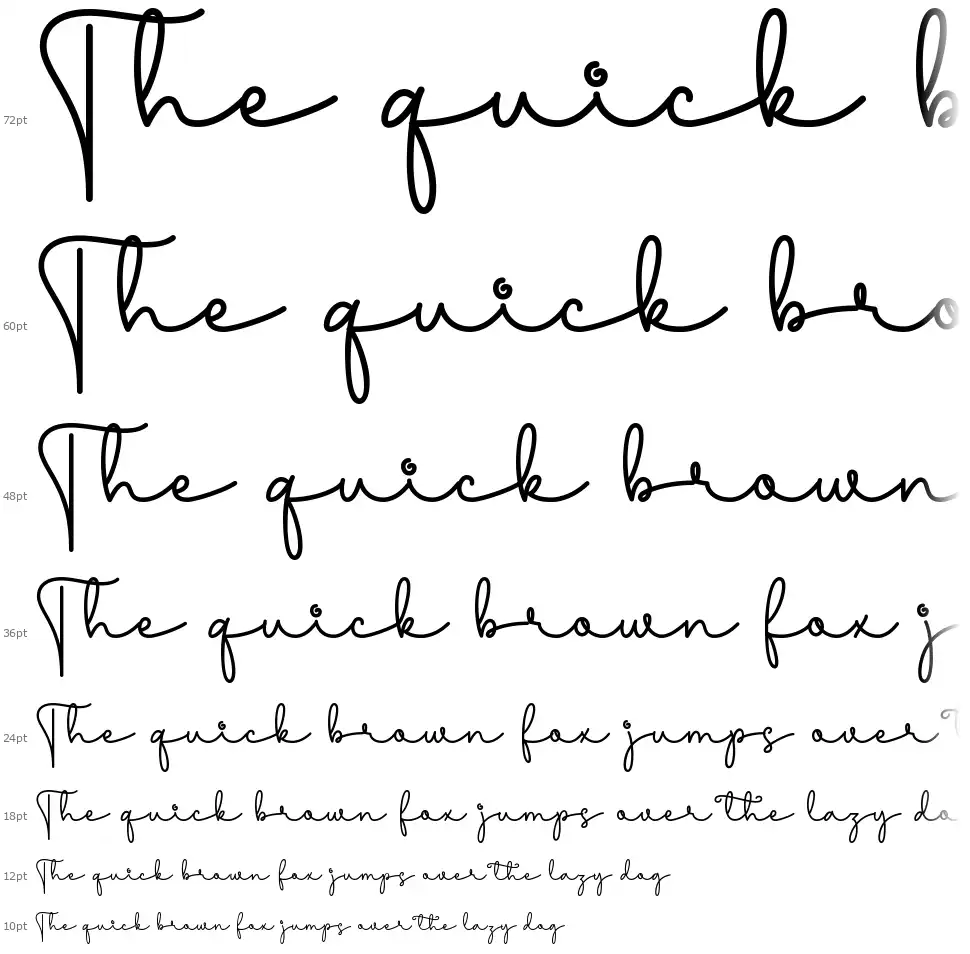 72pt The quick b
60pt The quick bro
48pt The quick brown
36pt The quick brown fox j
24pt The quick brown fox jumps over t
18pt The quick brown fox jumps over the lazy do
12pt The quick brown fox jumps over the lazy dog
10pt The quick brown fox jumps over the lazy dog